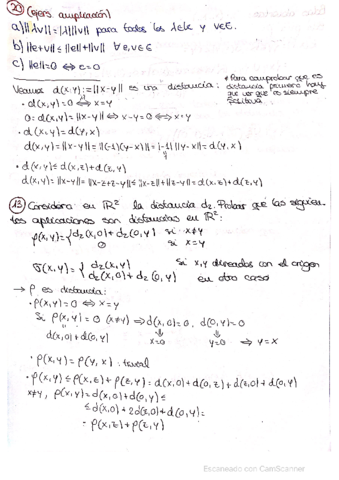 20 (ejers. ampliación)
a) ||λv|| = |λ| ||v|| para todos los λ∈k y v∈E.
b) ||e+v|| ≤ ||e|| + ||v|| ∀ e,v∈E
c) ||e|| = 0 ⇔ e = 0
Veamos d(x,y) := ||x-y|| es una distancia:
* Para comprobar que es distancia primero hay que ver que es siempre positiva
• d(x,y) = 0 ⇔ x=y
0 = d(x,y) = ||x-y|| ⇔ x-y = 0 ⇔ x=y
• d(x,y) = d(y,x)
d(x,y) = ||x-y|| = ||(-1)(y-x)|| = |-1| ||y-x|| = d(y,x)
• d(x,y) ≤ d(x,z) + d(z,y)
d(x,y) = ||x-y|| = ||x-z+z-y|| ≤ ||x-z|| + ||z-y|| = d(x,z) + d(z,y)
13 Considera en ℝ² la distancia d₂. Probar que las siguientes aplicaciones son distancias en ℝ²:
ρ(x,y) = { d₂(x,0) + d₂(0,y) si x≠y
0 si x=y
σ(x,y) = { d₂(x,y) si x,y alineados con el origen
d₂(x,0) + d₂(0,y) en otro caso
→ ρ es distancia:
• ρ(x,y) = 0 ⇔ x=y
Si ρ(x,y) = 0 (x≠y) ⇒ d(x,0) = 0, d(0,y) = 0
d(x,0) + d(0,y) x=0 y=0 ⇒ y=x
• ρ(x,y) = ρ(y,x) : trivial
• ρ(x,y) ≤ ρ(x,z) + ρ(z,y) = d(x,0) + d(0,z) + d(z,0) + d(0,y)
x≠y, ρ(x,y) = d(x,0) + d(0,y) ≤
≤ d(x,0) + 2d(z,0) + d(0,y) =
= ρ(x,z) + ρ(z,y)
Escaneado con CamScanner